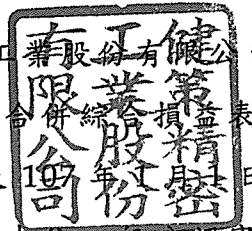 業股份有限公
合併綜合損益表
107 年 1 月 1 日
健策精密
工業股份
有限公司